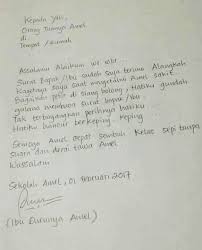 Kepada Yth.
Orang Tuanya Amel
di
Tempat / Rumah
Assalamu Alaikum wr wbr
Surat Bapak/Ibu sudah saya terima. Alangkah
kagetnya saya saat mengetahui Amel sakit.
Bagaikan petir di siang bolong, Hatiku gundah
gulana membaca surat bapak/ibu
Tak terbayangkan perihnya hatiku
Hatiku hancur berkeping-keping
Semoga Amel cepat sembuh. Kelas sepi tanpa
suara dan derai tawa Amel
Wassalam
Sekolah Amel, 01 Februari 2017
(Ibu Gurunya Amel)